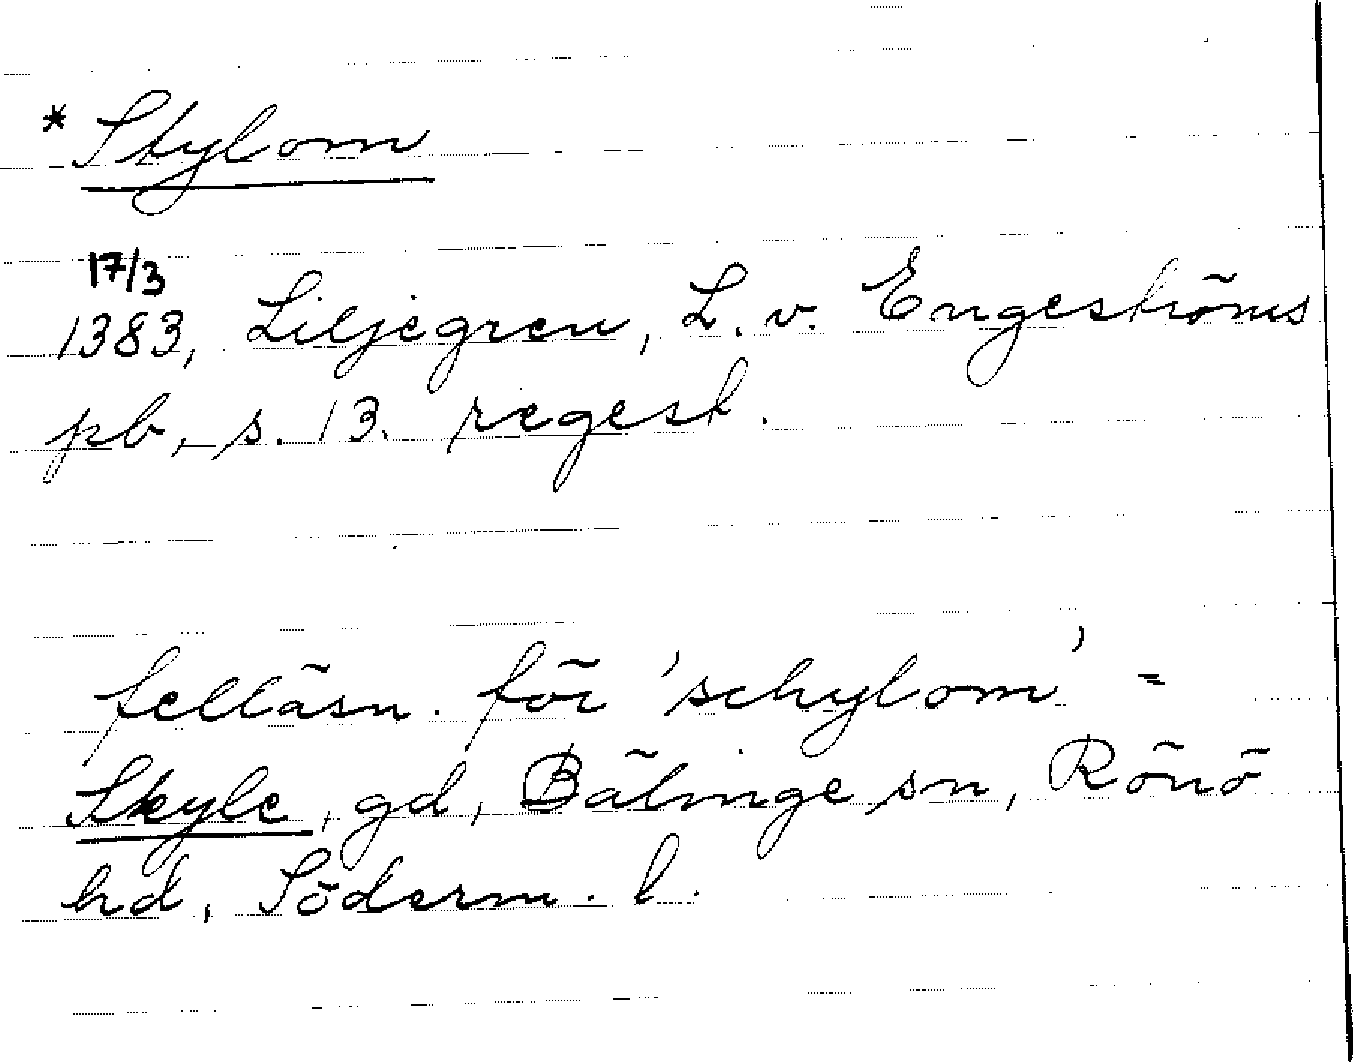 * Stylom
17/3
1383, Liljegren, L. v. Engeströms
pb, s. 13. regest.
felläsn. för 'schylom' =
Skyle, gd, Bälinge sn, Rönö
hd, Söderm. l.